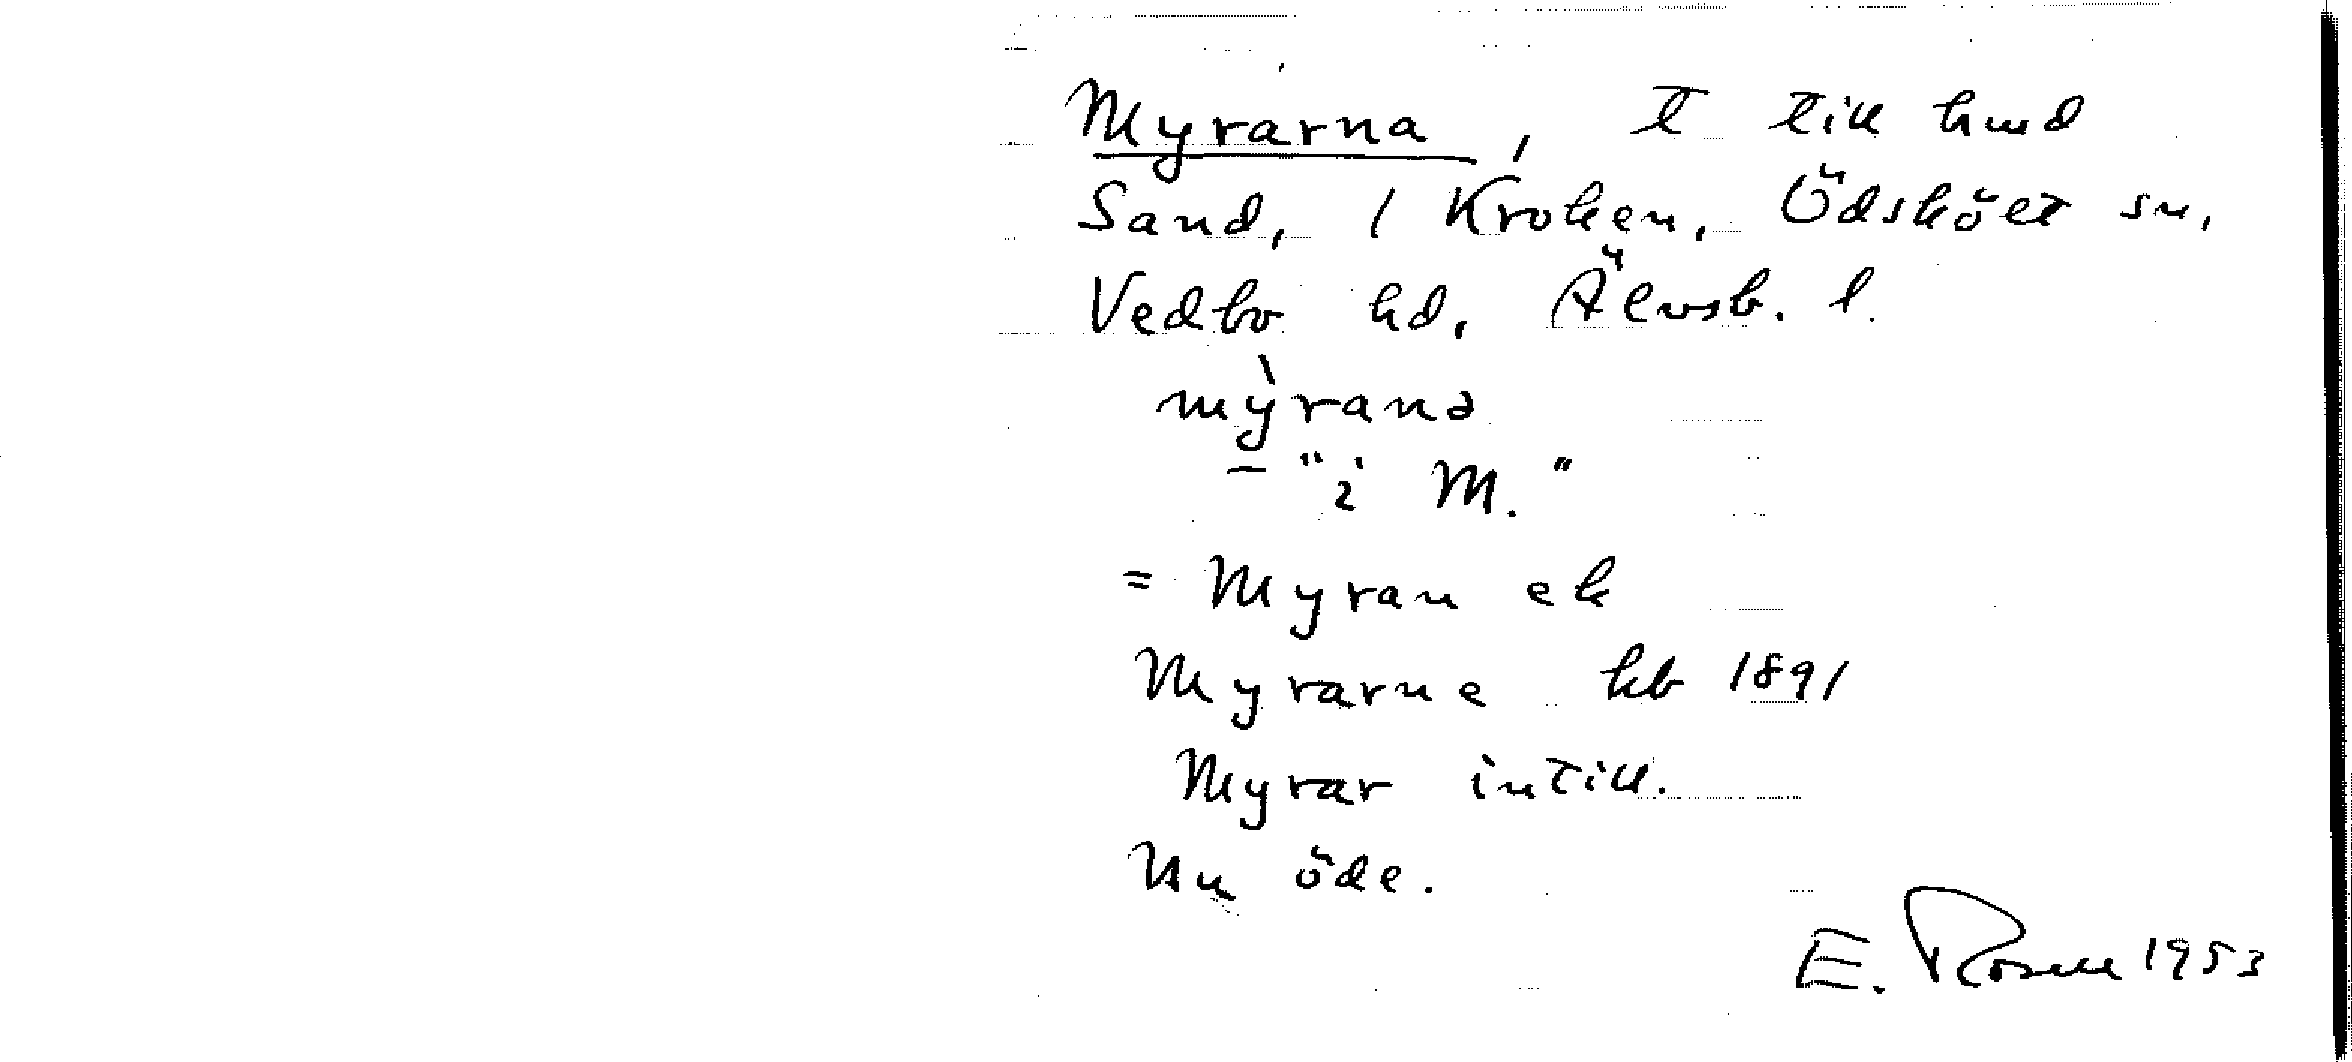 Myrarna, t till hmd
Sand, 1 Kroken, Ödskölt sn,
Vedbo hd, Älvsb. l.
mỳ̖ranə
– "i M."
= Myran ek
Myrarne kb 1891
Myrar intill.
Nu öde.
E. Rosell 1953